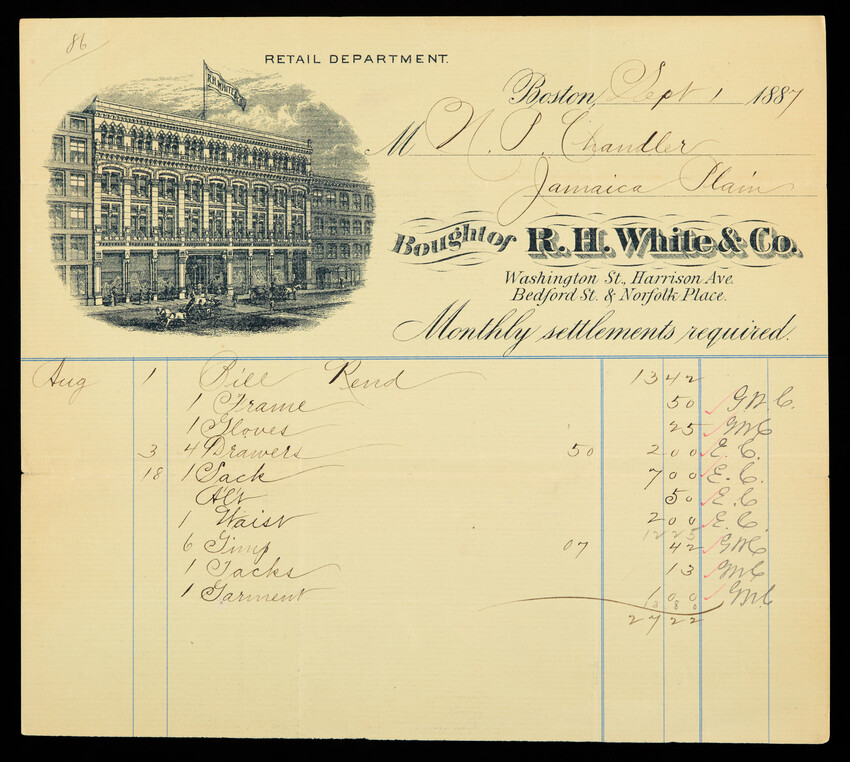 86
RETAIL DEPARTMENT.
R.H. WHITE & CO.
Boston, Sept 1 1887
M N. P. Chandler
Jamaica Plain
Bought of R. H. White & Co.
Washington St., Harrison Ave.
Bedford St. & Norfolk Place.
Monthly settlements required.
Aug 1 Bill Rend 13 42
1 Frame 50 G.W.C.
1 Gloves 25 GWC
3 4 Drawers 50 2 00 E. C.
18 1 Sack 7 00 E. C.
Alt 50 E. C.
1 Waist 2 00 E. C.
12 25
6 Gimp 07 42 GWC
1 Tacks 13 GWC
1 Garment 1 00 GWC
13 80
27 22